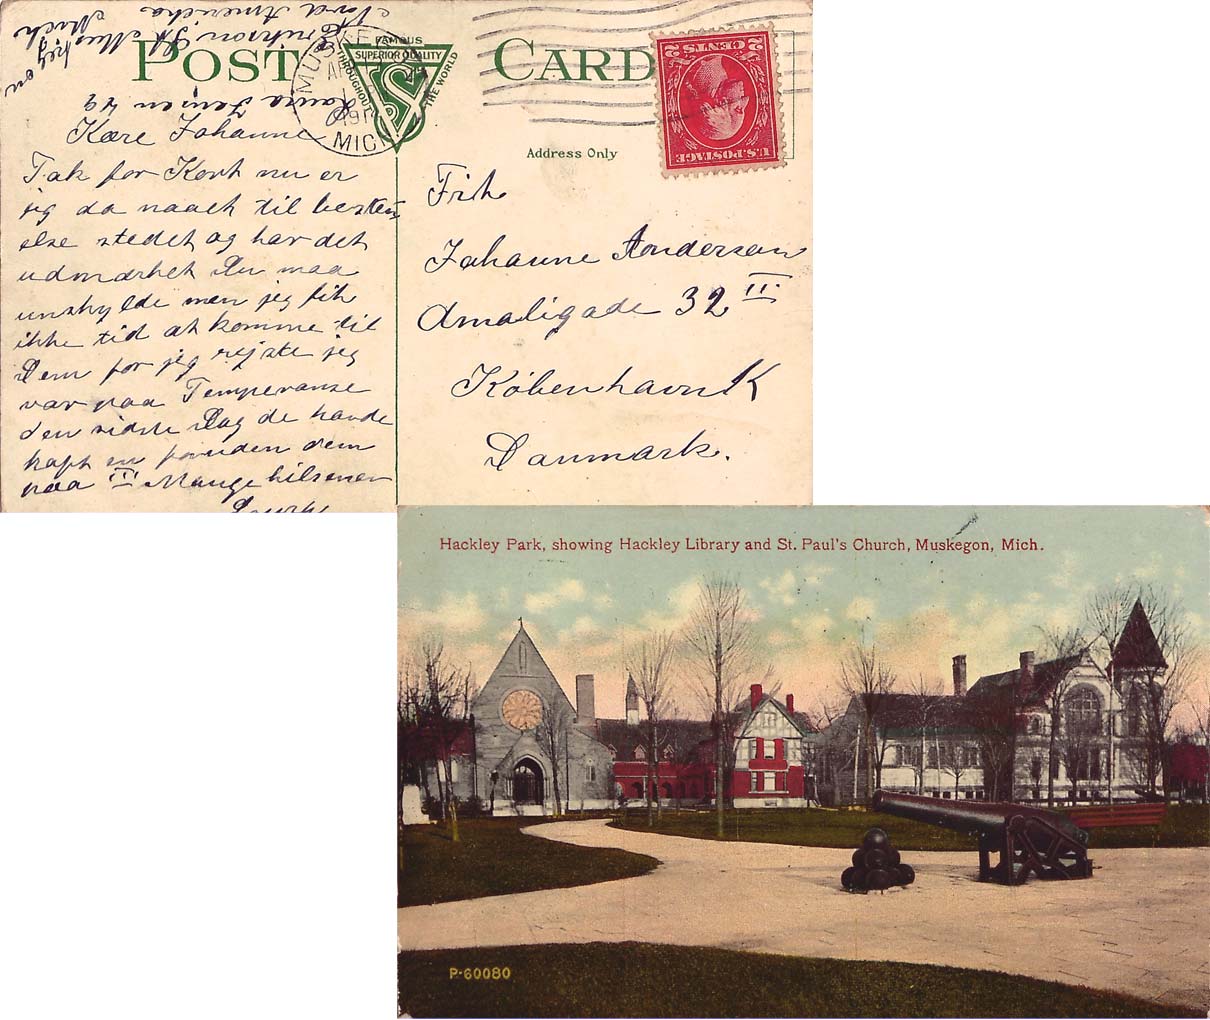 POST CARD
FAMOUS
SUPERIOR QUALITY
THROUGHOUT THE WORLD
MUSKEGON
MICH
2 CENTS 2
U.S. POSTAGE
Address Only
Laura Jensen 49
Erikson St Mus
kegon
Mich
Nord Amerecka
Kære Johanne
Tak for Kort nu er
jeg da naaet til besten
else stedet og har det
udmærket Du maa
unskylde men jeg fik
ikke tid at komme til
Dem for jeg rejste jeg
var paa Temperanse
den sidste Dag de havde
kaft en foruden dem
paa III Mange hilsener
Laura
Frk
Johanne Andersen
Amaligade 32 II.
København K
Danmark.
Hackley Park, showing Hackley Library and St. Paul's Church, Muskegon, Mich.
P-60080